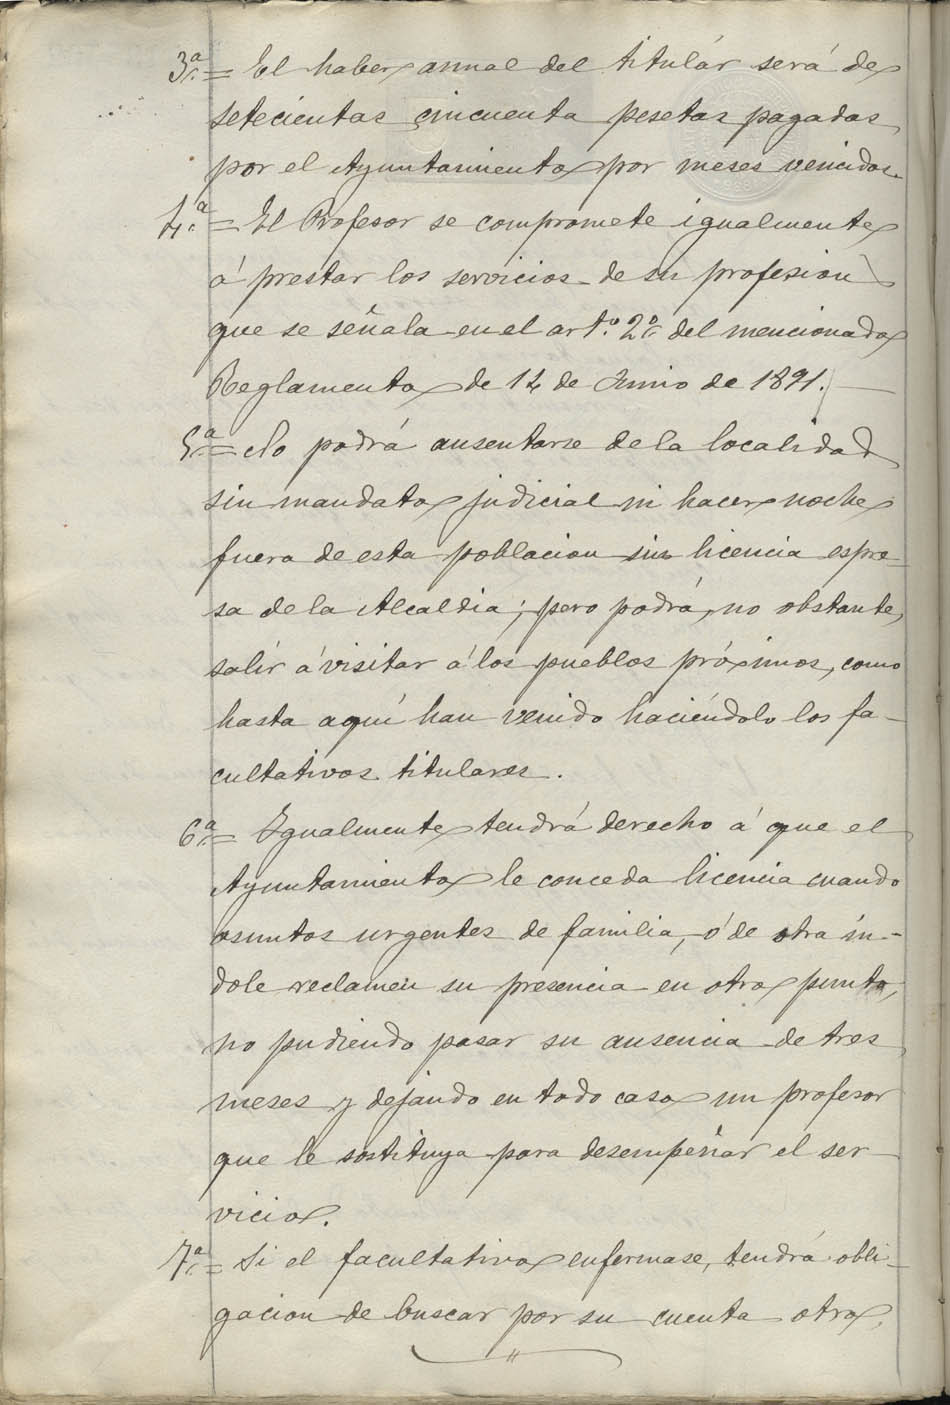 3ª = El haber anual del titulár será de
setecientas cincuenta pesetas pagadas
por el Ayuntamiento por meses vencidos.
4.ª = El Profesor se compromete igualmente
á prestar los servicios de su profesion
que se señala en el art.º 2º del mencionado
Reglamento de 14 de Junio de 1891.
5ª = No podrá ausentarse de la localidad
sin mandato judicial ni hacer noche
fuera de esta poblacion sin licencia espre-
sa de la Alcaldia; pero podrá, no obstante,
salir á visitar á los pueblos próximos, como
hasta aquí han venido haciéndolo los fa-
cultativos titulares.
6ª = Igualmente tendrá derecho á que el
Ayuntamiento le conceda licencia cuando
asuntos urgentes de familia, ó de otra ín-
dole reclamen su presencia en otro punto,
no pudiendo pasar su ausencia de tres
meses y dejando en todo caso un profesor
que le sostituya para desempeñar el ser-
vicio.
7ª = Si el facultativo enfermase, tendrá obli-
gacion de buscar por su cuenta otro,